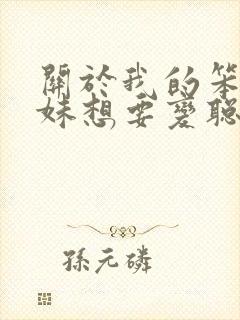 關於我的笨
妹想要變聰
孫元磷